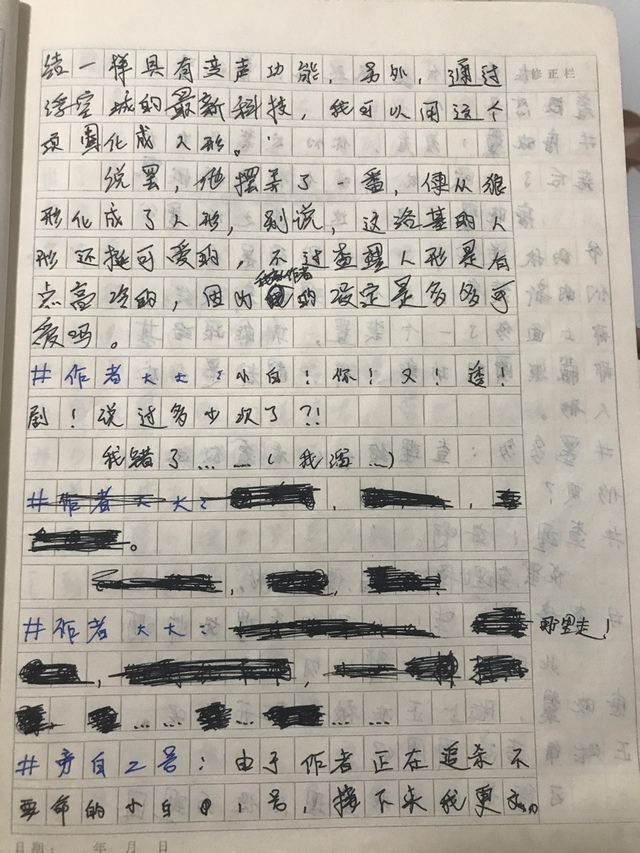 结一样具有变声功能，另外，通过
修正栏
浮空城的最新科技，我可以用这个
项圈化成人形。
说罢，他摆弄了一番，便从狼
形化成了人形，别说，这洛基的人
形还挺可爱的，不过查理人形是有
点高冷的，因为我和作者的设定是多多可
爱吗。
#作者大大：小白！你！又！透！
剧！说过多少次了？！
我错了……（我溜…）
#作者大大：
。
#作者大大： 哪里走！
#旁白2号：由于作者正在追杀不
要命的小白1号，接下来我更文。
日期： 年 月 日